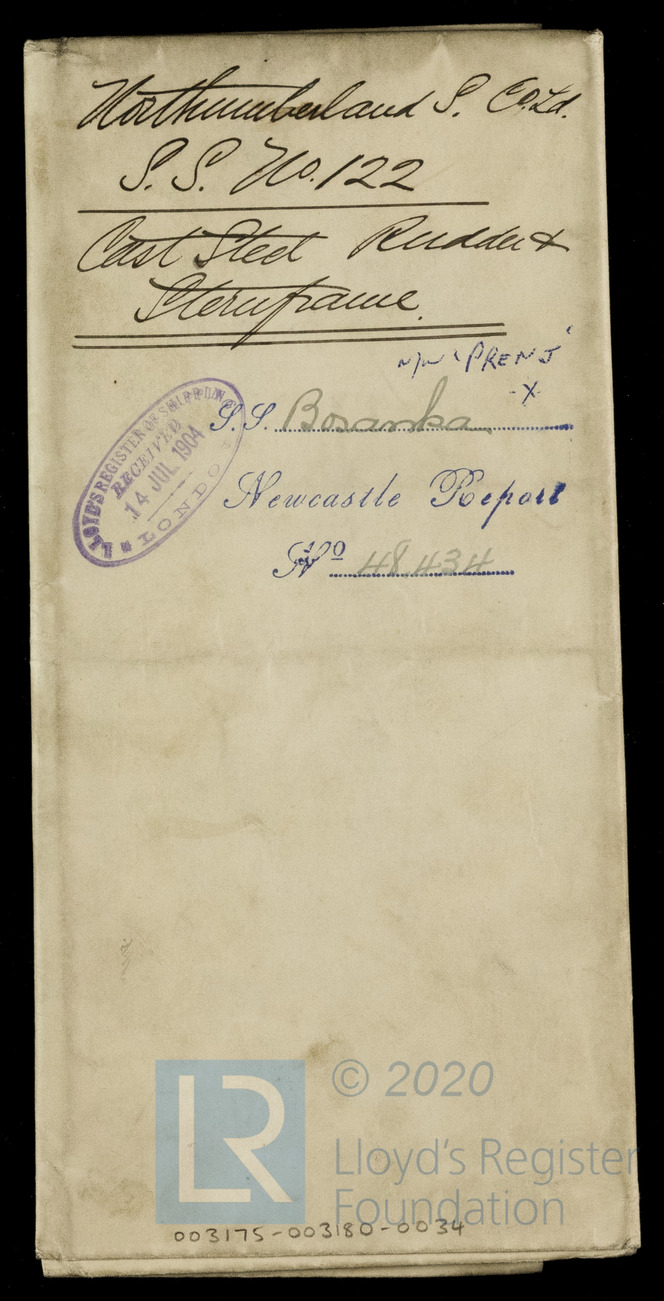 Northumberland S. Co. Ld.
S.S. No. 122
Cast Steel Rudder &
Sternframe.
N/N 'PRENJ'
X
S.S. Bosanka
LLOYD'S REGISTER OF SHIPPING
RECEIVED
14 JUL 1904
LONDON
Newcastle Report
No 48.434
© 2020
LR
Lloyd's Register
Foundation
003175-003180-0034